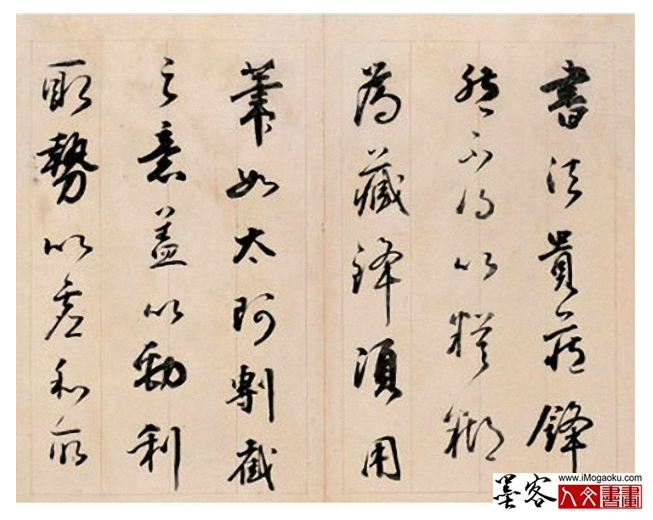 書法貴藏鋒
然不得以糢糊
為藏鋒須用
筆如太阿剸截
之意蓋以勁利
取勢以虛和取
墨客
www.iMogaoku.com
人文書畫